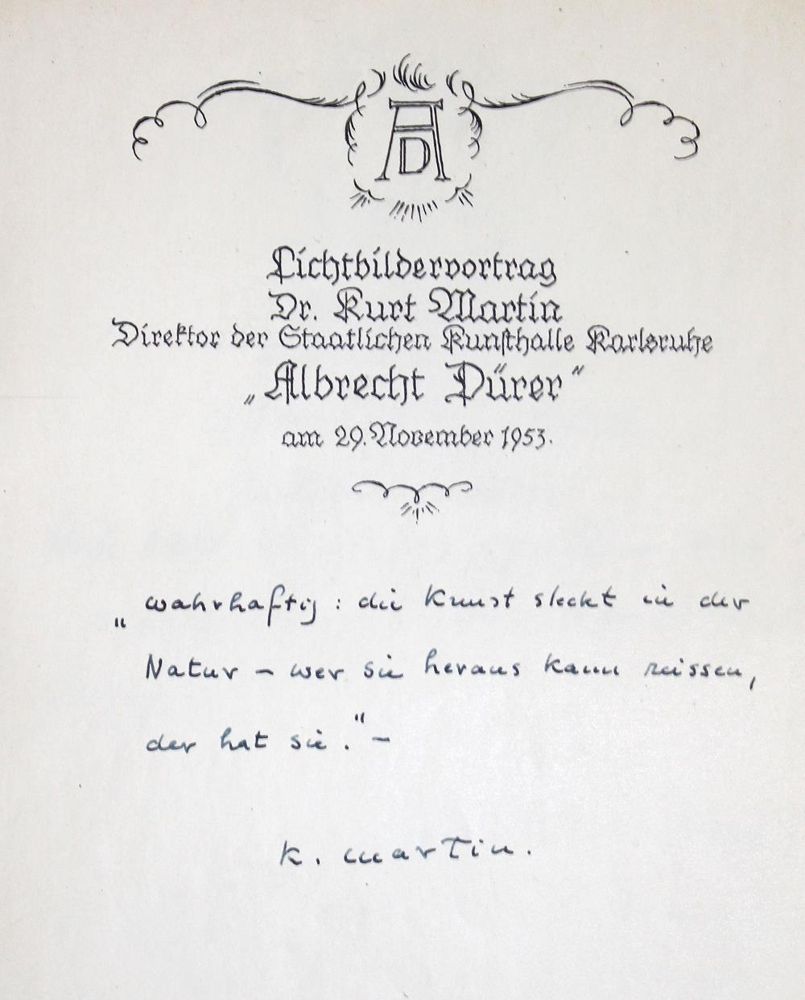 AD
Lichtbildervortrag
Dr. Kurt Martin
Direktor der Staatlichen Kunsthalle Karlsruhe
„Albrecht Dürer"
am 29. November 1953.
„wahrhaftig: die Kunst steckt in der
Natur – wer sie heraus kann reissen,
der hat sie." –
K. Martin.